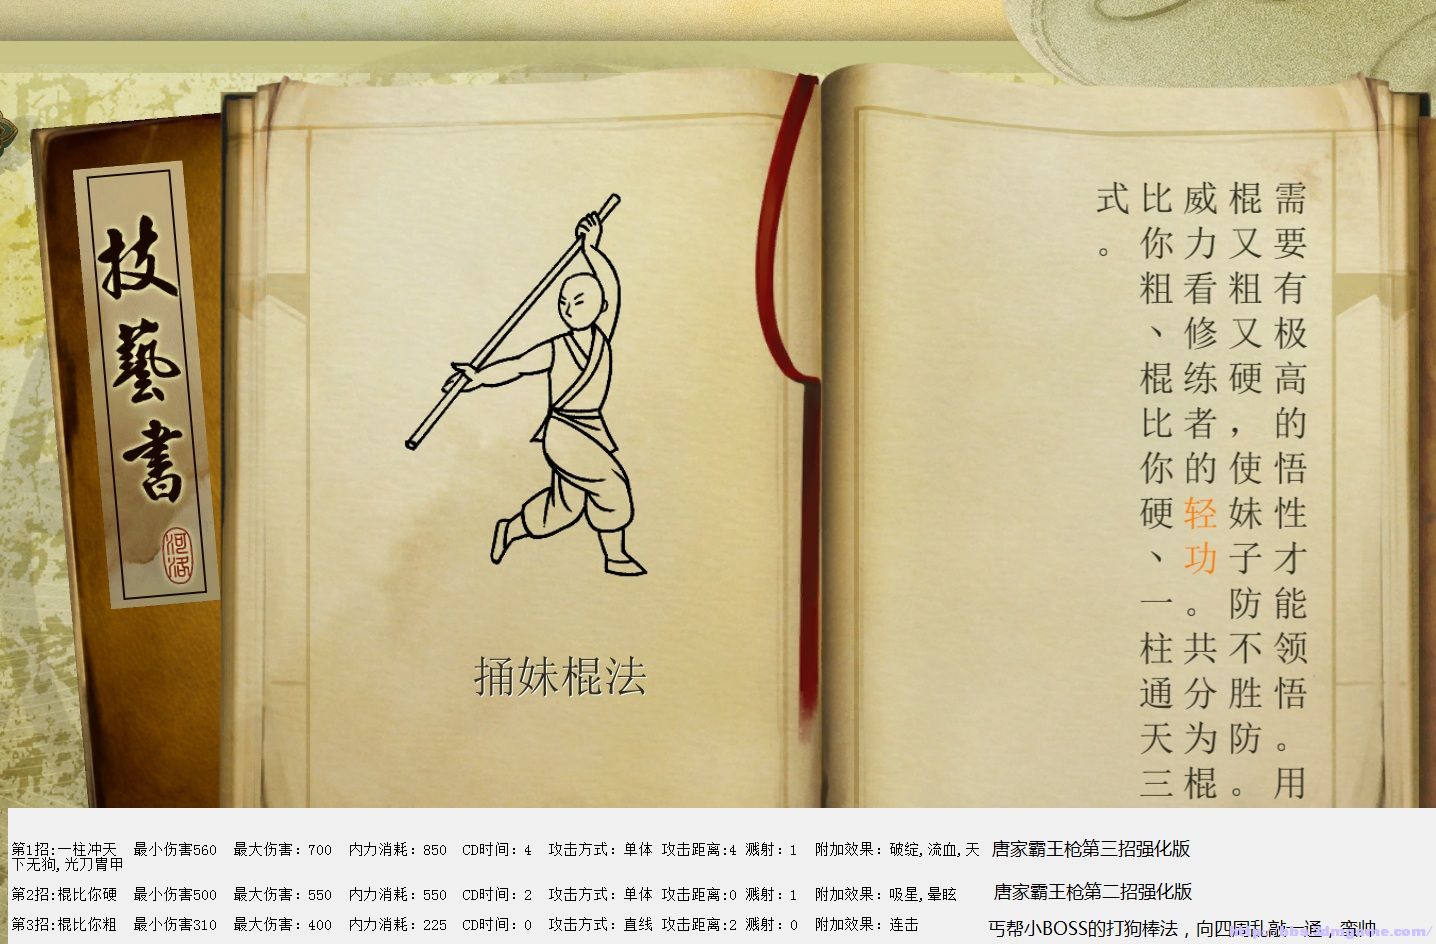 技藝書
河洛
捅妹棍法
需要有极高的悟性才能领悟。用
棍又粗又硬，使妹子防不胜防。
威力看修练者的轻功。共分为棍
比你粗、棍比你硬、一柱通天三
式。
第1招:一柱冲天 最小伤害560 最大伤害：700 内力消耗：850 CD时间：4 攻击方式：单体 攻击距离:4 溅射：1 附加效果：破绽,流血,天 唐家霸王枪第三招强化版
下无狗,光刀胄甲
第2招:棍比你硬 最小伤害500 最大伤害：550 内力消耗：550 CD时间：2 攻击方式：单体 攻击距离:0 溅射：1 附加效果：吸星,晕眩 唐家霸王枪第二招强化版
第3招:棍比你粗 最小伤害310 最大伤害：400 内力消耗：225 CD时间：0 攻击方式：直线 攻击距离:2 溅射：0 附加效果：连击 丐帮小BOSS的打狗棒法，向四周乱敲一通，蛮帅